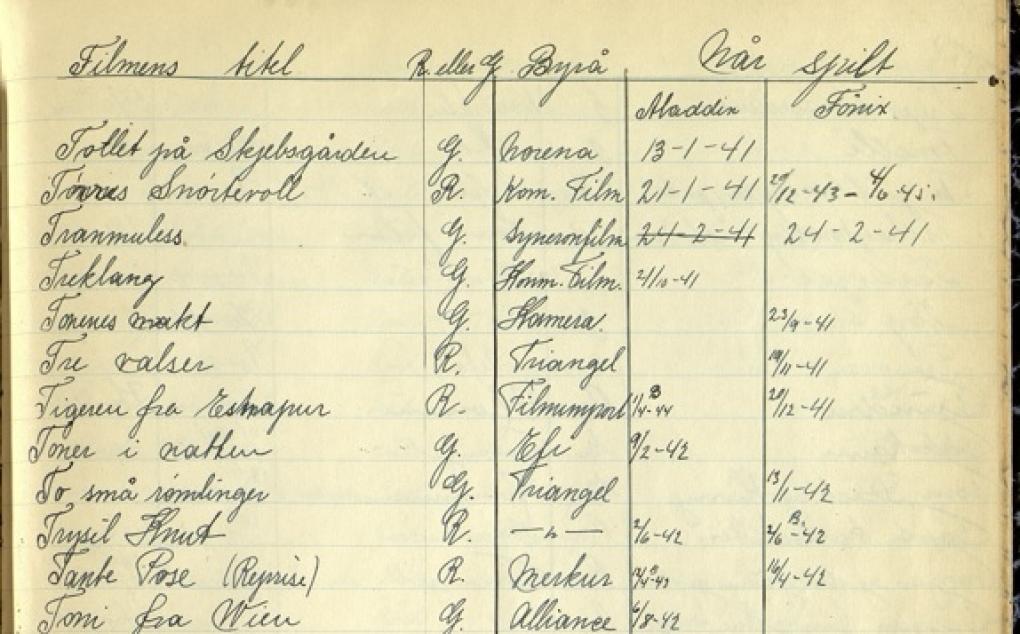 Filmens titel R. eller G Byrå Når spilt
Aladdin Fönix
Tollet på Skjebsgården G. Norena 13-1-41
Törres Snörtevoll R. Kom. Film 21-1-41 29/12-43 - 4/6-45.
Tranmuless G. Syncronfilm 24-2-41 24-2-41
Treklang G. Komm. Film. 21/10-41
Tonenes makt G. Kamera. 23/9-41
Tre valser R. Triangel /11-41
Tigeren fra Eshnapur R. Filmimport 1/4-44 B 20/12-41
Toner i natten G. Efi 9/2-42
To små römlinger G. Triangel 13/1-42
Trysil Knut R. —"— 2/6-42 2/6-42 B.
Tante Pose (Reprise) R. Merkur 16/4-42
Toni fra Wien G. Alliance 6/8-42